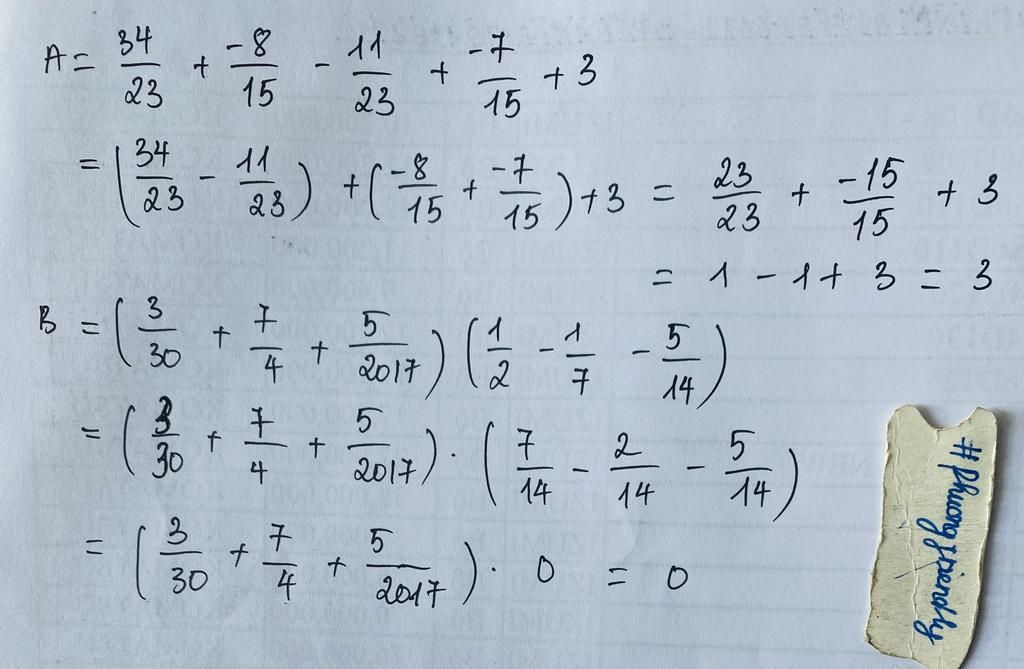 A = 34/23 + -8/15 - 11/23 + -7/15 + 3
= (34/23 - 11/23) + (-8/15 + -7/15) + 3 = 23/23 + -15/15 + 3
= 1 - 1 + 3 = 3
B = (3/30 + 7/4 + 5/2017) (1/2 - 1/7 - 5/14)
= (3/30 + 7/4 + 5/2017) . (7/14 - 2/14 - 5/14)
= (3/30 + 7/4 + 5/2017) . 0 = 0
#phuongfriendly